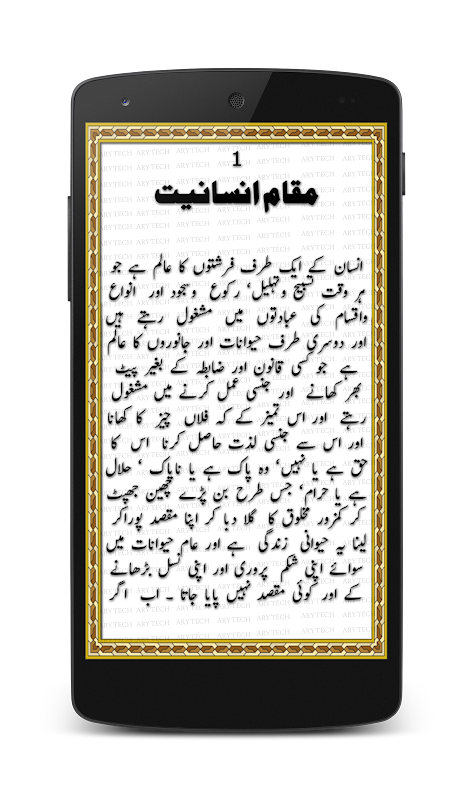 1
مقام انسانیت
انسان کے ایک طرف فرشتوں کا عالم ہے جو
ہر وقت تسبیح وتہلیل، رکوع وسجود اور انواع
واقسام کی عبادتوں میں مشغول رہتے ہیں
اور دوسری طرف حیوانات اور جانوروں کا عالم
ہے جو کسی قانون اور ضابطہ کے بغیر پیٹ
بھر کھانے اور جنسی عمل کرنے میں مشغول
رہتے اور اس تمیز کے کہ فلاں چیز کا کھانا
اور اس سے جنسی لذت حاصل کرنا اس کا
حق ہے یا نہیں، وہ پاک ہے یا ناپاک ، حلال
ہے یا حرام، جس طرح بن پڑے چھین جھپٹ
کر کمزور مخلوق کا گلا دبا کر اپنا مقصد پوراکر
لینا یہ حیوانی زندگی ہے اور عام حیوانات میں
سوائے اپنی شکم پروری اور اپنی نسل بڑھانے
کے اور کوئی مقصد نہیں پایا جاتا ۔ اب اگر
ARYTECH